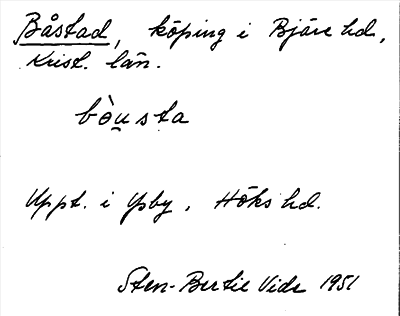 Båstad, köping i Bjäre hd.,
Krist. län.
bòu̯sta
Uppt. i Ysby, Höks hd.
Sten-Bertil Vide 1951